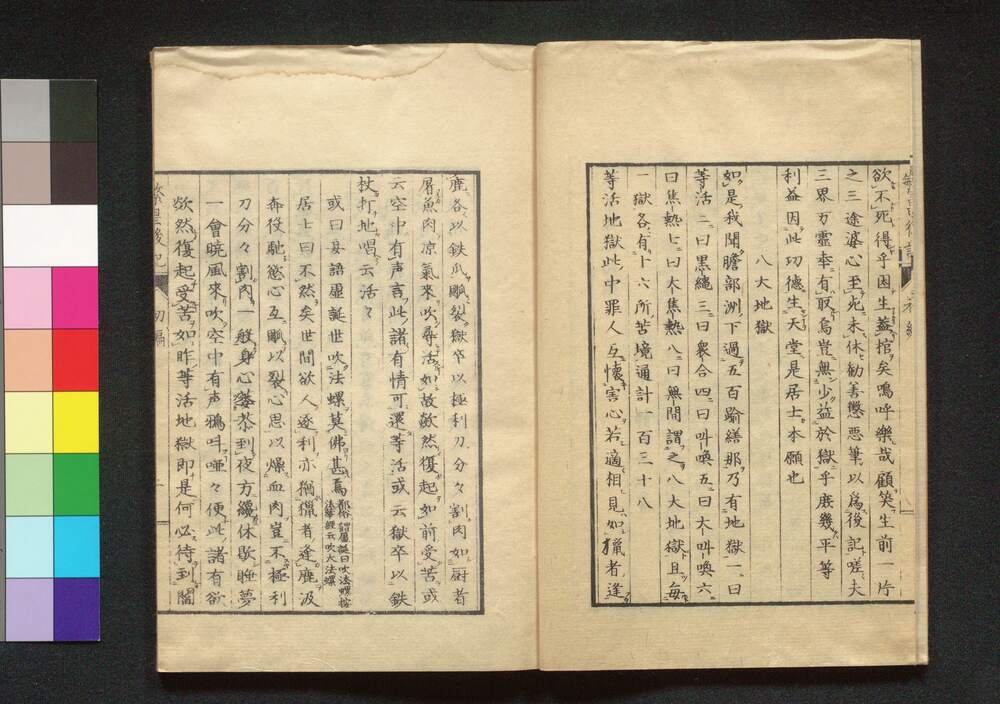 欲不死得乎因生蓋棺矣嗚呼樂哉顧笑生前一片
之三途婆心至死未休勧善懲悪筆以為後記嗟夫
三界万靈幸有取焉豈無少益於獄乎庶幾平等
利益因此功德生天堂是居士本願也
八大地獄
如是我聞贍部洲下過五百踰繕那乃有地獄一曰
等活二曰黒繩三曰衆合四曰叫喚五曰大叫喚六
曰焦熱七曰大焦熱八曰無間謂之八大地獄且毎
一獄各有十六所苦境通計一百三十八
等活地獄此中罪人互懐害心若適相見如獵者逢
鹿各以鉄爪𪮫裂獄卒以極利刀分々割肉如厨者
屠魚肉凉氣來吹尋活如故歘然復起如前受苦或
云空中有声言此諸有情可還等活或云獄卒以鉄
杖打地唱云活々
或曰妄語虚誕世吹法螺莫佛甚焉鄙俗謂虚誕曰吹法螺按
法華經云吹大法螺
居士曰不然矣世間欲人逐利亦猶獵者逢鹿汲
奔役馳慾心互𪮫以裂心思以燥血肉豈不極利
刀分々割肉一般身心萎苶到夜方纔休歇睡夢
一會暁風來吹空中有声鴉叫唖々便此諸有欲
歘然復起受苦如昨等活地獄即是何必待到閻
繁昌後記
初編
二